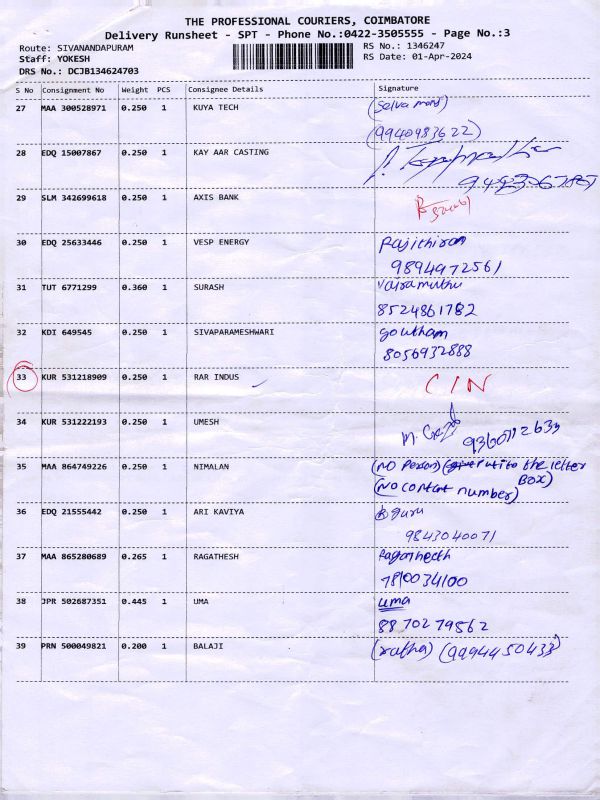 THE PROFESSIONAL COURIERS, COIMBATORE
Delivery Runsheet - SPT - Phone No.:0422-3505555 - Page No.:3
Route: SIVANANDAPURAM
RS No.: 1346247
Staff: YOKESH
RS Date: 01-Apr-2024
DRS No.: DCJB134624703
S No Consignment No Weight PCS Consignee Details Signature
27 MAA 300528971 0.250 1 KUYA TECH (Selva
(9940983622)
28 EDQ 15007867 0.250 1 KAY AAR CASTING
29 SLM 342699618 0.250 1 AXIS BANK
30 EDQ 25633446 0.250 1 VESP ENERGY Rajithiran
9894972561
31 TUT 6771299 0.360 1 SURASH Vairamuthu
8524861782
32 KDI 649545 0.250 1 SIVAPARAMESHWARI goutham
8056932888
33 KUR 531218909 0.250 1 RAR INDUS C/N
34 KUR 531222193 0.250 1 UMESH
35 MAA 864749226 0.250 1 NIMALAN (NO Person) ( to the letter
BOX)
(NO contact number)
36 EDQ 21555442 0.250 1 ARI KAVIYA guru
9843040071
37 MAA 865280689 0.265 1 RAGATHESH
7810034100
38 JPR 502687351 0.445 1 UMA uma
8870279562
39 PRN 500049821 0.200 1 BALAJI (ratha) (9994450433)